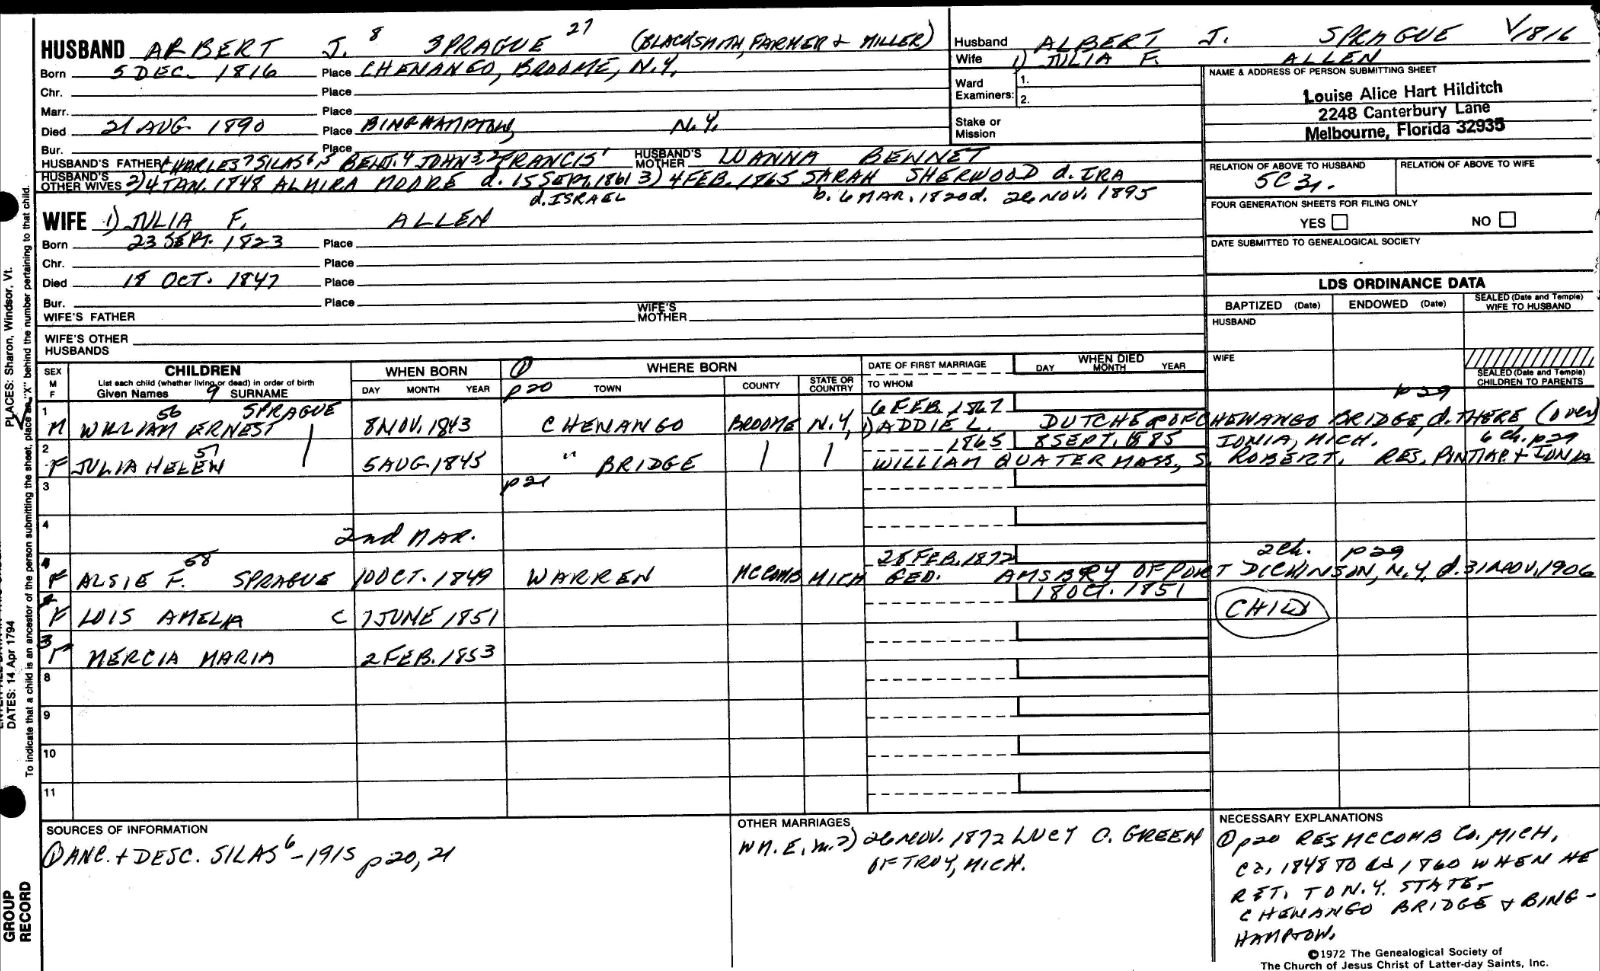 HUSBAND ALBERT J. 8 SPRAGUE 27 (BLACKSMITH, FARMER + MILLER)
Husband ALBERT J. SPRAGUE V1816
Wife 1) JULIA F. ALLEN
Born 5 DEC. 1816 Place CHENANGO, BROOME, N.Y.
Chr. Place
Marr. Place
Died 21 AUG. 1890 Place BINGHAMPTON, N.Y.
Bur. Place
Ward Examiners: 1.
2.
Stake or Mission
NAME & ADDRESS OF PERSON SUBMITTING SHEET
Louise Alice Hart Hilditch
2248 Canterbury Lane
Melbourne, Florida 32935
HUSBAND'S FATHER CHARLES 7 SILAS 6, 5 BENJ. 4 JOHN 3, 2 FRANCIS 1 HUSBAND'S MOTHER LUANNA BENNET
HUSBAND'S OTHER WIVES 2) 4 JAN. 1848 ALMIRA MOORE d. 15 SEPT. 1861 3) 4 FEB. 1865 SARAH SHERWOOD d. IRA
d. ISRAEL b. 6 MAR. 1820 d. 26 NOV. 1895
RELATION OF ABOVE TO HUSBAND RELATION OF ABOVE TO WIFE
5C3r.
FOUR GENERATION SHEETS FOR FILING ONLY
YES NO
DATE SUBMITTED TO GENEALOGICAL SOCIETY
WIFE 1) JULIA F. ALLEN
Born 23 SEPT. 1823 Place
Chr. Place
Died 18 OCT. 1847 Place
Bur. Place
WIFE'S FATHER WIFE'S MOTHER
WIFE'S OTHER HUSBANDS
LDS ORDINANCE DATA
BAPTIZED (Date) ENDOWED (Date) SEALED (Date and Temple) WIFE TO HUSBAND
HUSBAND
WIFE
SEALED (Date and Temple) CHILDREN TO PARENTS
SEX M F
CHILDREN
List each child (whether living or dead) in order of birth
Given Names 9 SURNAME
WHEN BORN
DAY MONTH YEAR
① p20
WHERE BORN
TOWN COUNTY STATE OR COUNTRY
DATE OF FIRST MARRIAGE
TO WHOM
WHEN DIED
DAY MONTH YEAR
56 6 FEB. 1867 p29
1 M WILLIAM ERNEST SPRAGUE 8 NOV. 1843 CHENANGO BROOME N.Y. 1) ADDIE L. DUTCHER OF CHENANGO BRIDGE, d. THERE (over)
57 1865 8 SEPT. 1885 IONIA, MICH. 6 Ch. p29
2 F JULIA HELEN 5 AUG. 1845 " BRIDGE WILLIAM QUATERMASS, S. ROBERT. RES. PINTIAP + IONIA
3 p21
4 2nd MAR.
58 28 FEB. 1872 2 Ch. p29
1 F ALSIE F. SPRAGUE 10 OCT. 1849 WARREN McCOMB MICH GEO. AMSBRY OF PORT DICKINSON, N.Y. d. 31 NOV. 1906
2 F LOIS AMELIA C 7 JUNE 1851 18 OCT. 1851 CHILD
3 F MERCIA MARIA 2 FEB. 1853
8
9
10
11
SOURCES OF INFORMATION
① ANC. + DESC. SILAS 6 - 1915 p20, 21
OTHER MARRIAGES
WM. E. m. 2) 26 NOV. 1872 LUCY C. GREEN
OF TROY, MICH.
NECESSARY EXPLANATIONS
① p20 RES McCOMB Co. MICH.
Ca. 1848 TO Ca 1860 WHEN HE
RET. TO N.Y. STATE-
CHENANGO BRIDGE + BING-
HAMPTON.
©1972 The Genealogical Society of
The Church of Jesus Christ of Latter-day Saints, Inc.
PLACES: Sharon, Windsor, Vt.
DATES: 14 Apr 1794
To indicate that a child is an ancestor of the person submitting the sheet, place an "X" behind the number pertaining to that child.
GROUP
RECORD